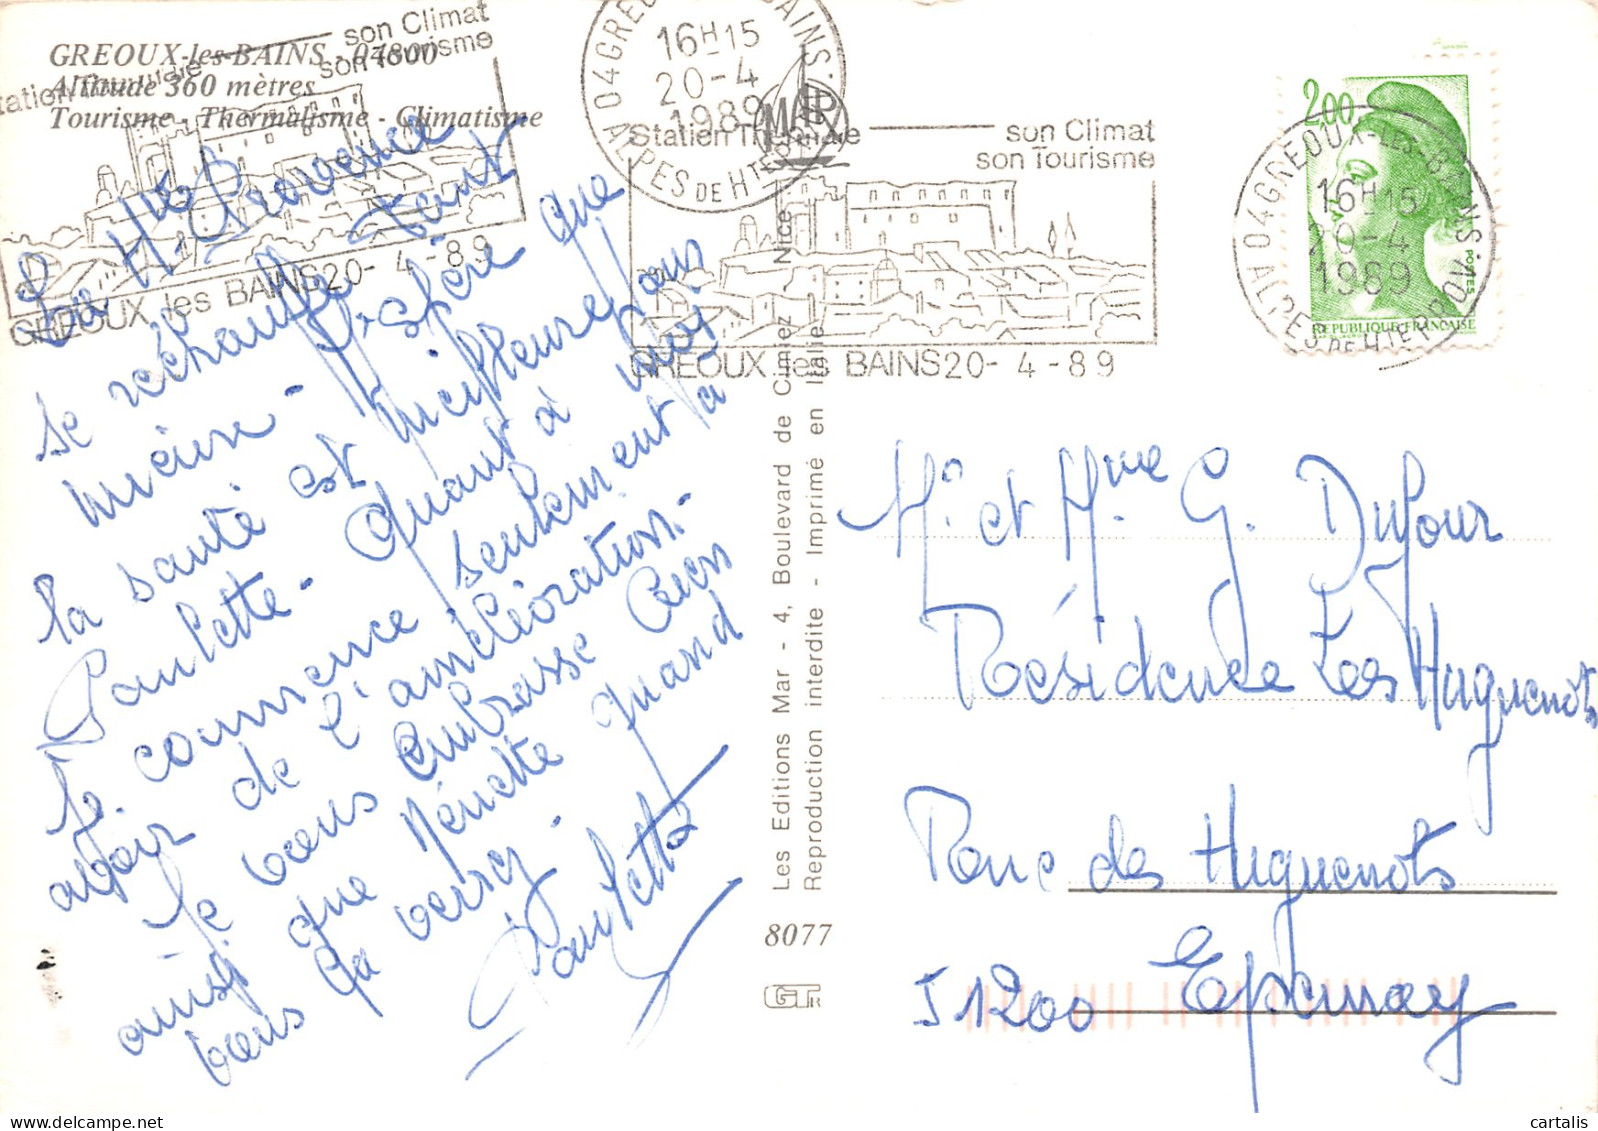 GREOUX-les-BAINS - 04800
Altitude 360 mètres
Tourisme - Thermalisme - Climatisme
son Climat
son Tourisme
GREOUX les BAINS 20-4-89
16H15
20-4
1989
ALPES DE HTE
MAR
Station Thermale
son Climat
son Tourisme
GREOUX les BAINS 20-4-89
2,00
POSTES
REPUBLIQUE FRANCAISE
04 GREOUX-LES-BAINS
16H15
20-4
1989
La Hte Provence
se réchauffe tant
mieux - J'espère que
la santé est meilleure pour
Paulette - Quant à moi
je commence seulement à
de l'amélioration.
Je vous embrasse
ainsi que Nénette quand
vous la verrez.
Paulette
Les Editions Mar - 4, Boulevard de Cimiez Nice
Reproduction interdite - Imprimé en Italie
8077
GT
Mr et Mme G. Dufour
Résidence Les Huguenots
Rue des Huguenots
51200 Epernay
cartalis.com